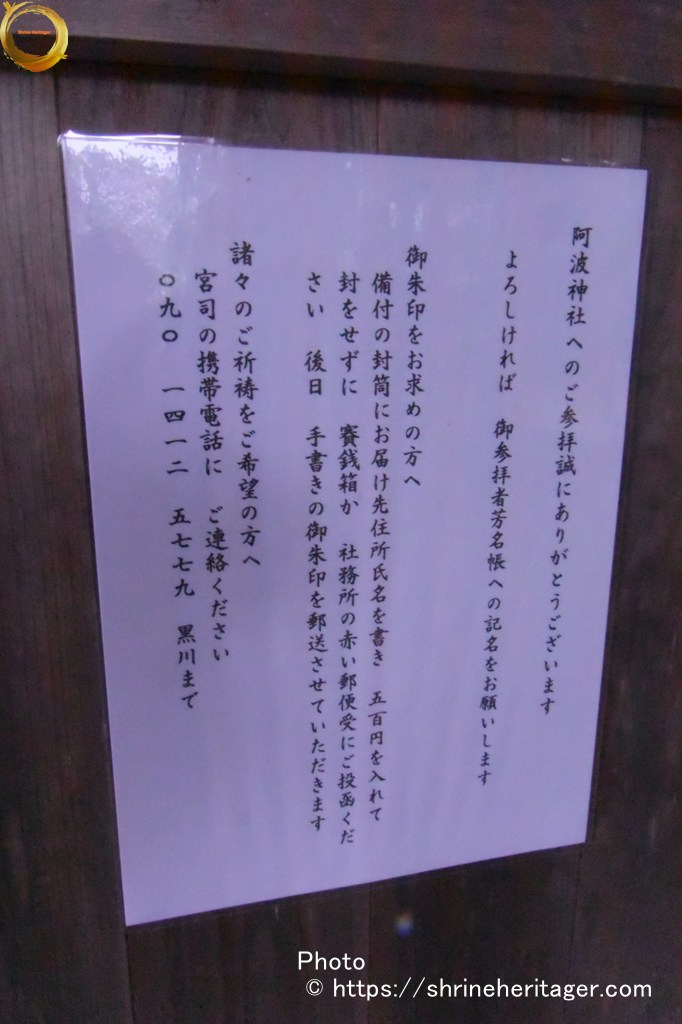 Shrine Heritager
阿波神社へのご参拝誠にありがとうございます
よろしければ 御参拝者芳名帳への記名をお願いします
御朱印をお求めの方へ
備付の封筒にお届け先住所氏名を書き 五百円を入れて
封をせずに 賽銭箱か 社務所の赤い郵便受にご投函くだ
さい 後日 手書きの御朱印を郵送させていただきます
諸々のご祈祷をご希望の方へ
宮司の携帯電話に ご連絡ください
〇九〇 一四一二 五七七九 黒川まで
Photo
© https://shrineheritager.com